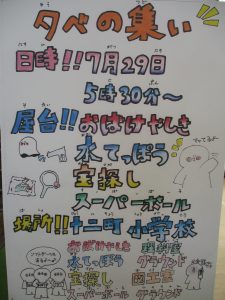 夕べの集い
日時!!7月29日
5時30分～
屋台!!おばけやしき
水てっぽう
宝探し
スーパーボール
場所!!十二町小学校
おばけやしき 理科室
水てっぽう グラウンド
宝探し 図工室
スーパーボール グラウンド